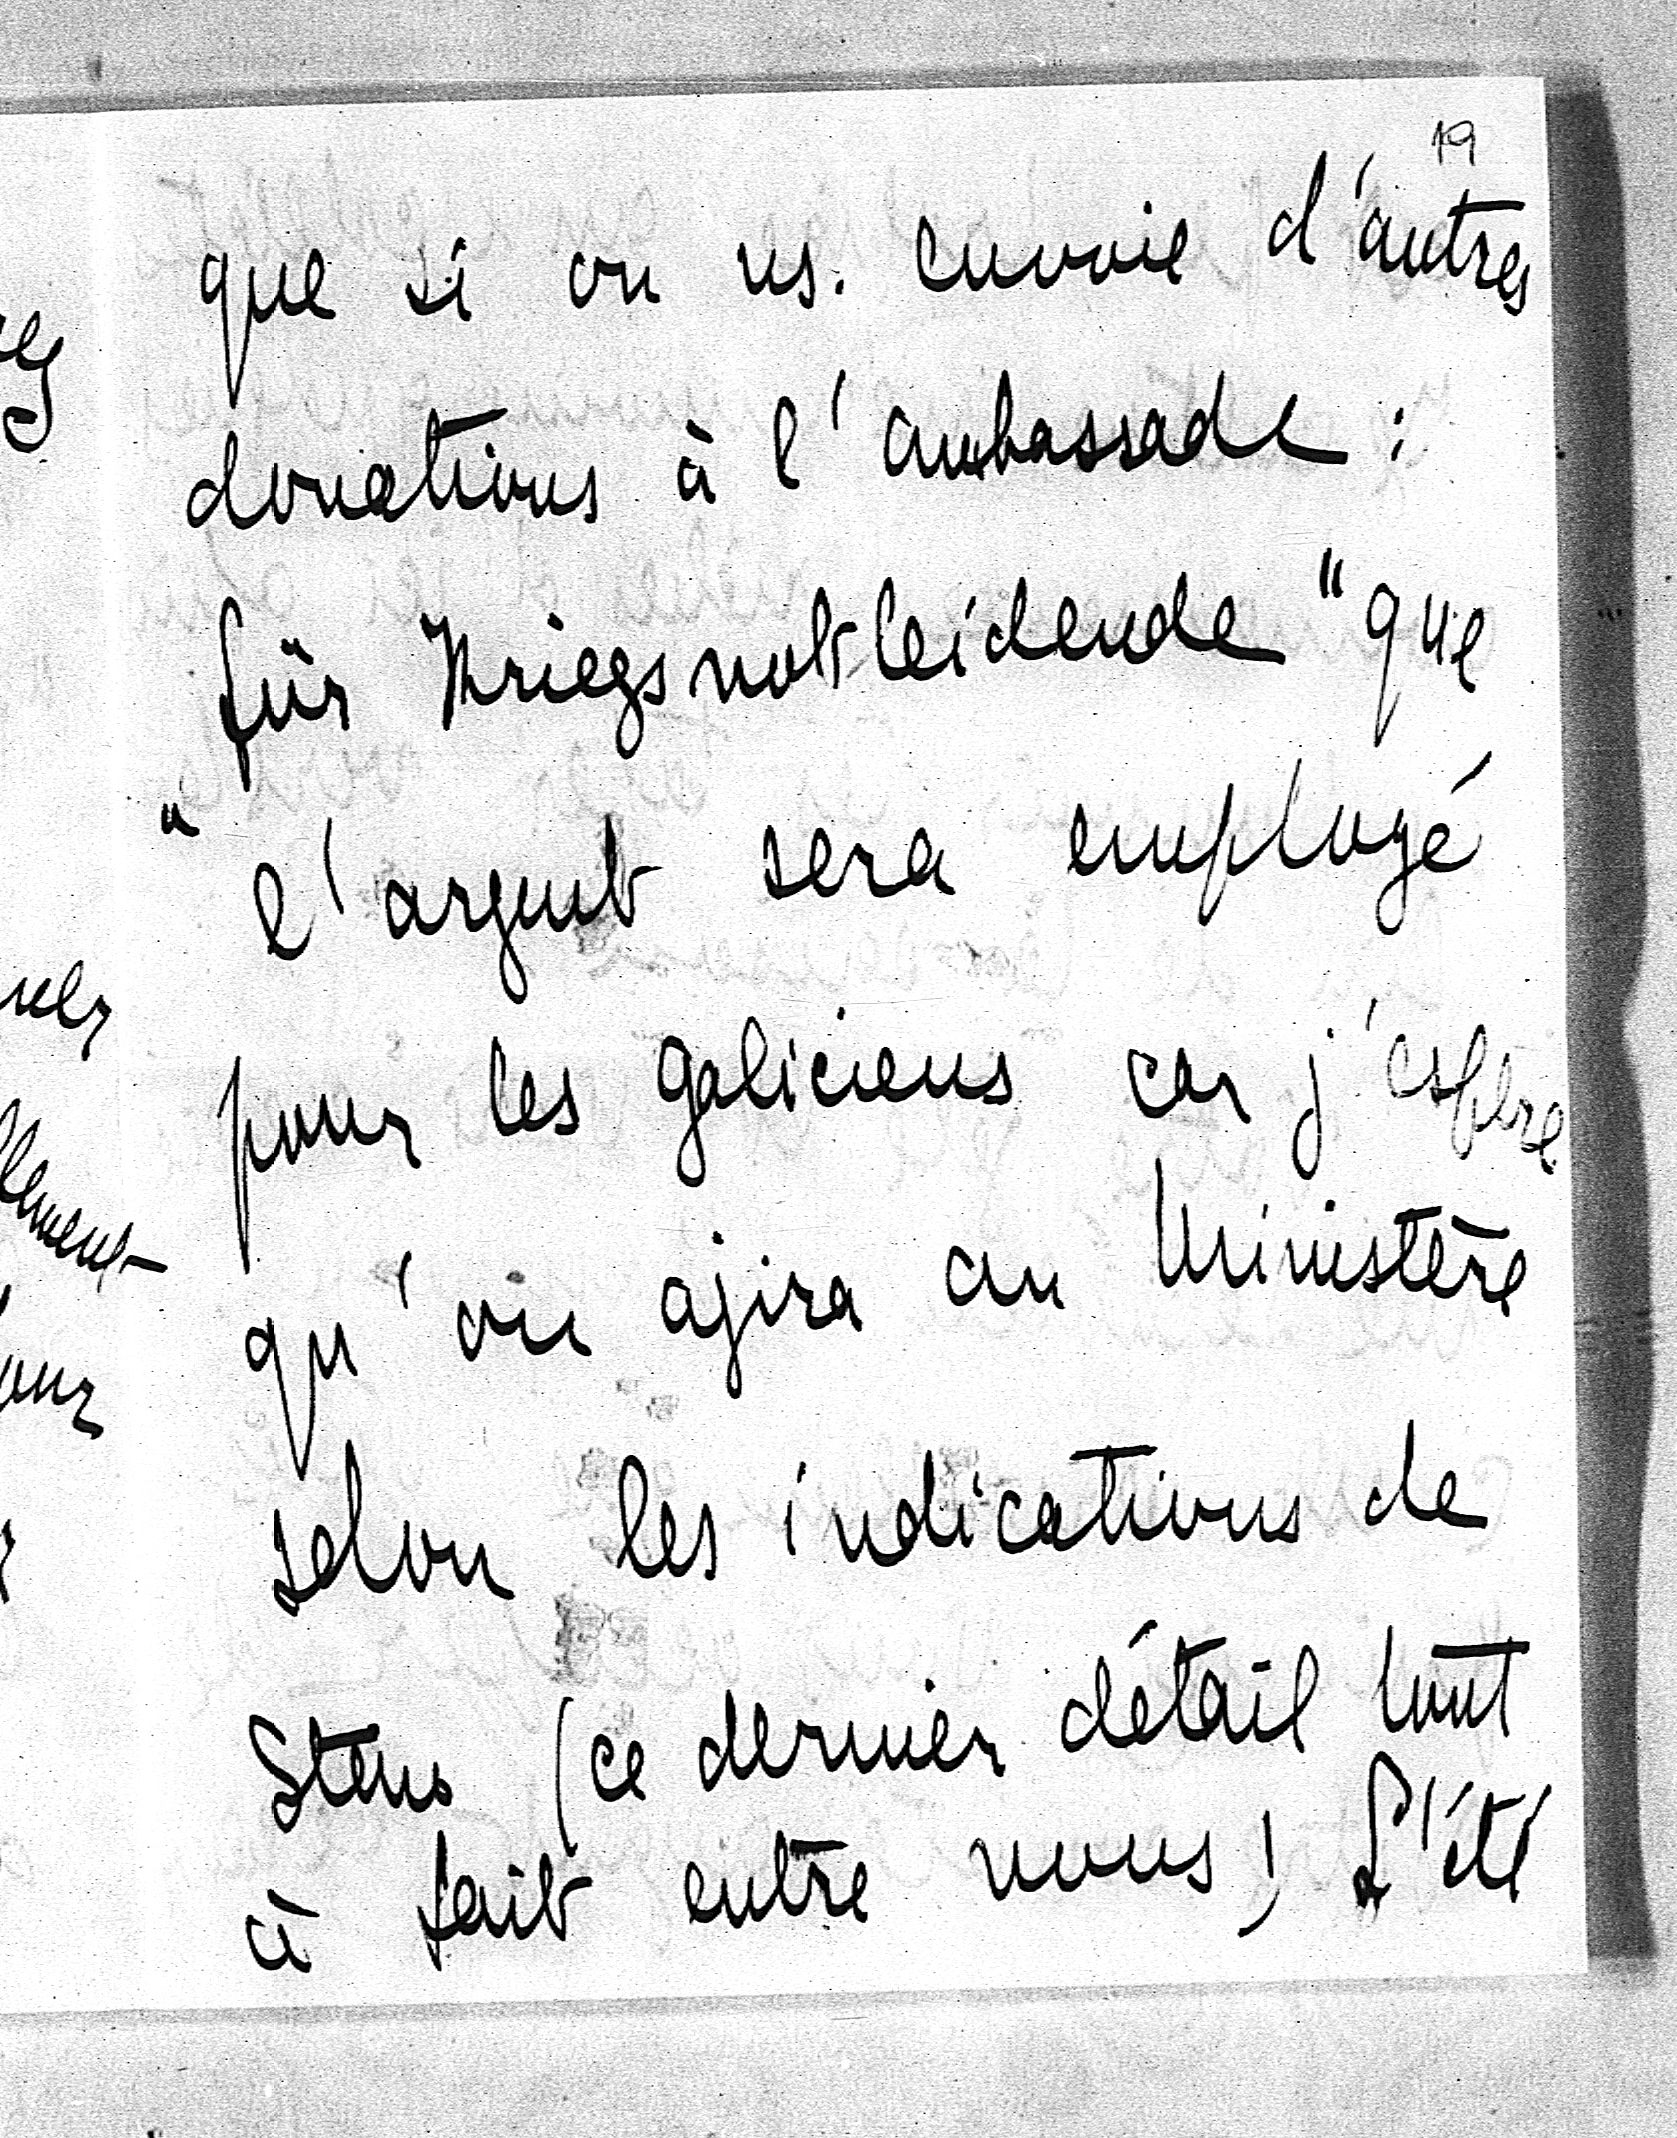 19
que si on ns. envoie d'autres
donations à l'ambassade :
für Kriegsnotleidende" que
" l'argent sera employé
pour les galiciens car j'espère
qu'on agira au Ministère
selon les indications de
(ce dernier détail tout
à fait entre nous) L'été